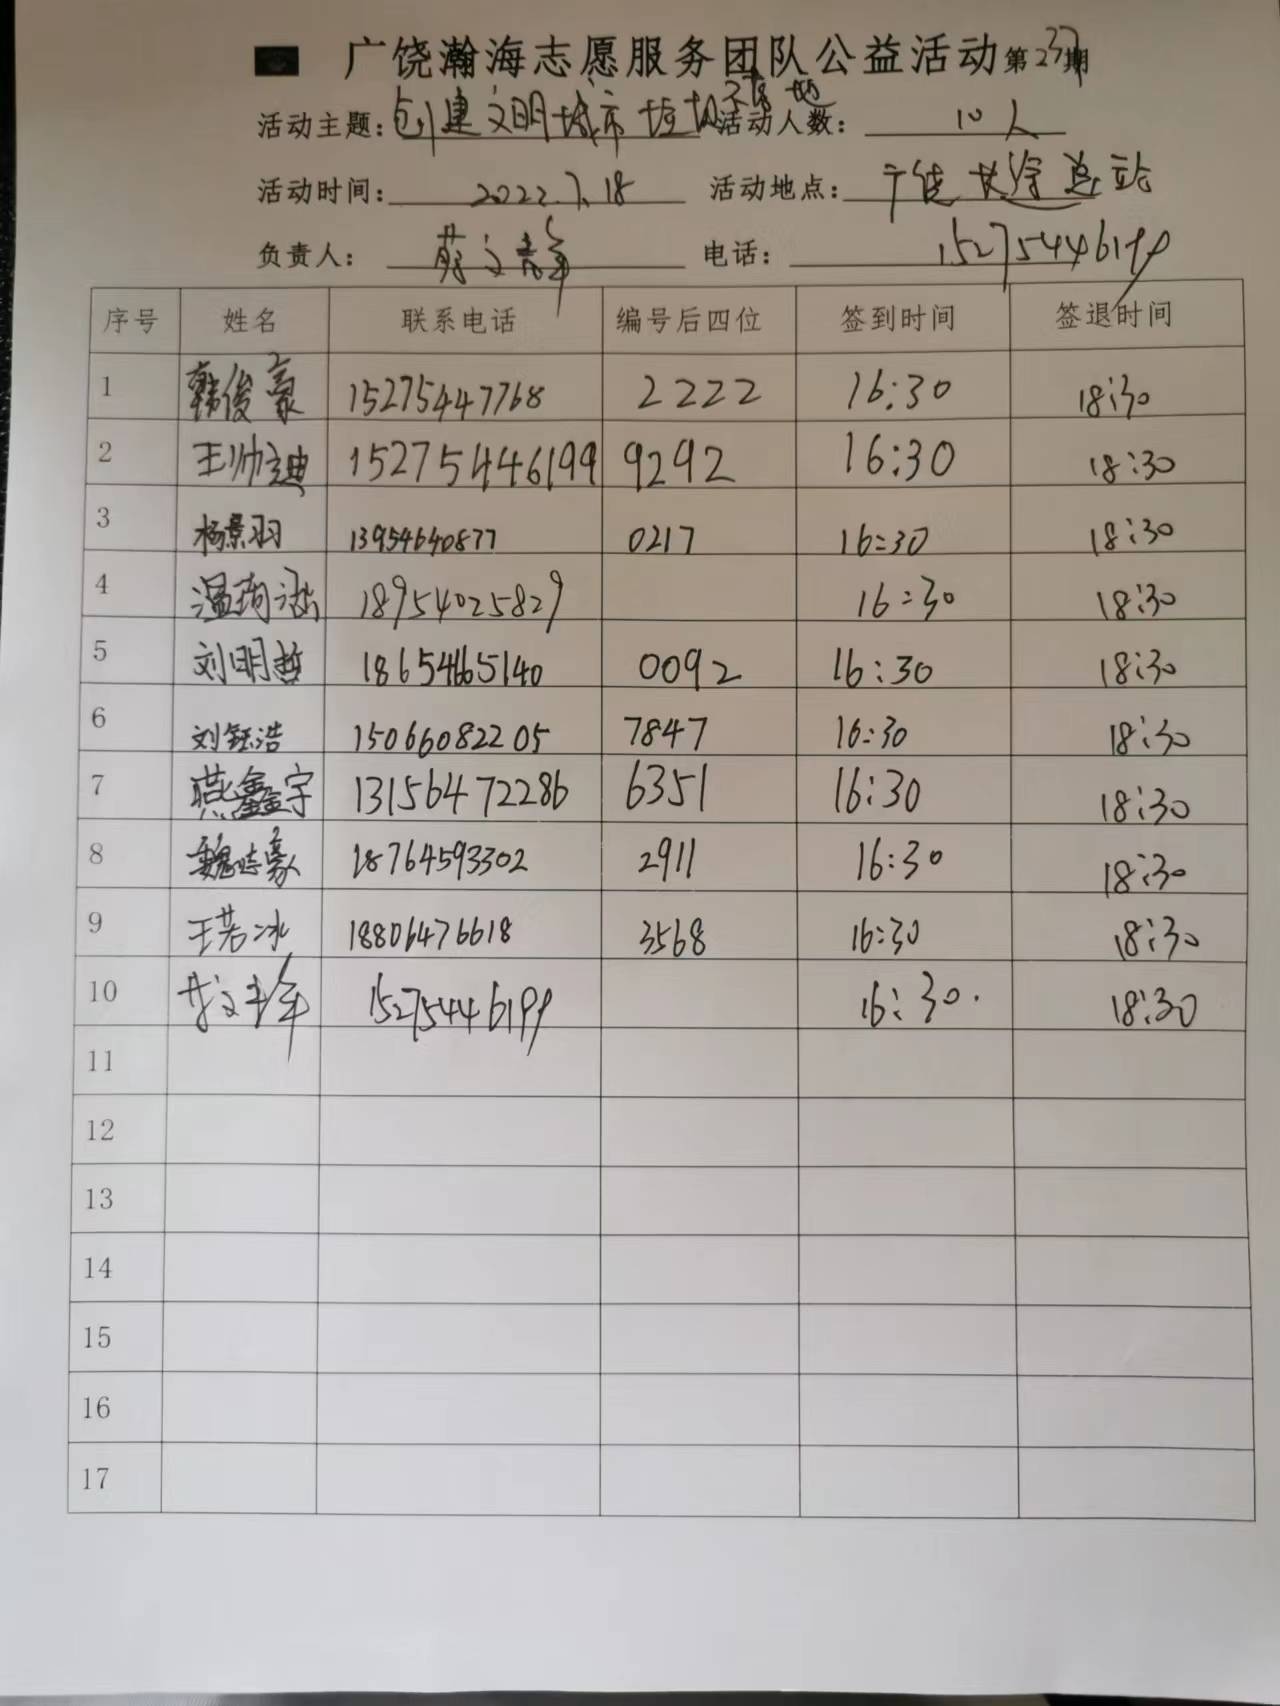 广饶瀚海志愿服务团队公益活动第237期
活动主题：创建文明城市垃圾不落地 活动人数：10人
活动时间：2022.7.18 活动地点：广饶长途总站
负责人： 电话：15275446199
序号 姓名 联系电话 编号后四位 签到时间 签退时间
1 韩俊豪 15275447768 2222 16:30 18:30
2 王帅迪 15275446199 9292 16:30 18:30
3 杨景羽 13954640877 0217 16:30 18:30
4 温珣涵 18954025829 16:30 18:30
5 刘明哲 18654665140 0092 16:30 18:30
6 刘钰浩 15066082205 7847 16:30 18:30
7 燕鑫宇 13156472286 6351 16:30 18:30
8 魏志豪 18764593302 2911 16:30 18:30
9 王若冰 18806476618 3568 16:30 18:30
10 15275446199 16:30. 18:30
11
12
13
14
15
16
17